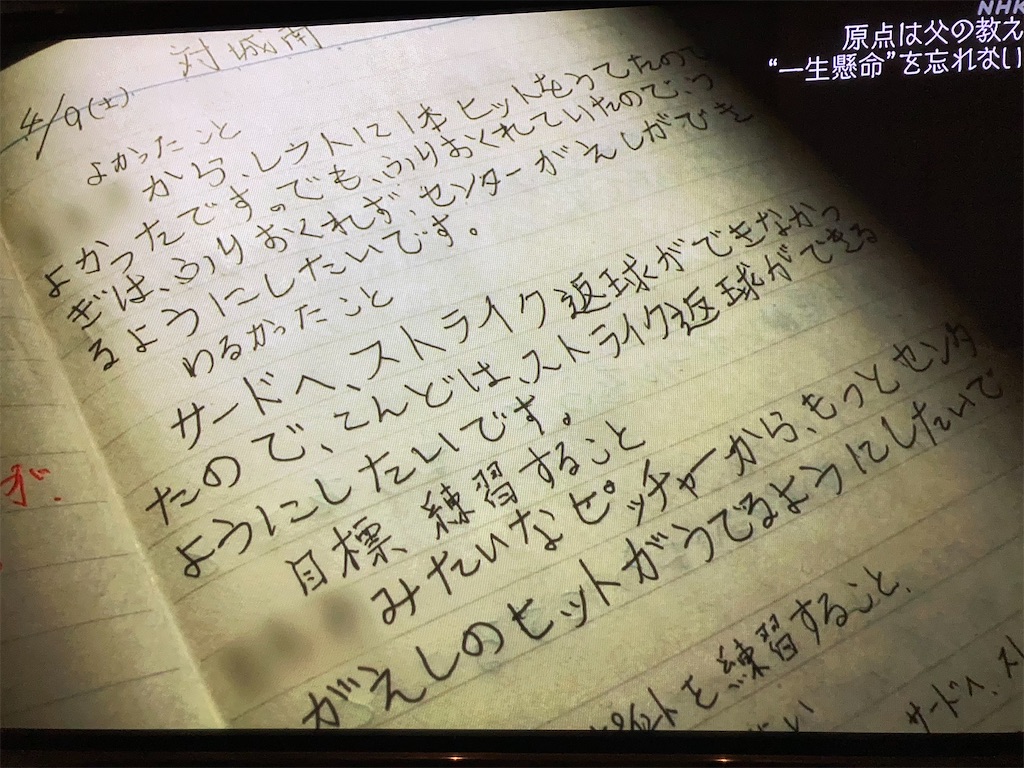 NHK
原点は父の教え
“一生懸命”を忘れない
対城南
4/9(土)
よかったこと
から、レフトに1本ヒットをうてたので
よかったです。でも、ふりおくれていたので、つ
ぎは、ふりおくれず、センターがえしができ
るようにしたいです。
わるかったこと
サードへ、ストライク返球ができなかっ
たので、こんどは、ストライク返球ができる
ようにしたいです。
目標 練習すること
みたいなピッチャーから、もっとセンター
がえしのヒットがうてるようにしたいで
を練習すること、
サードへ、スト
が、